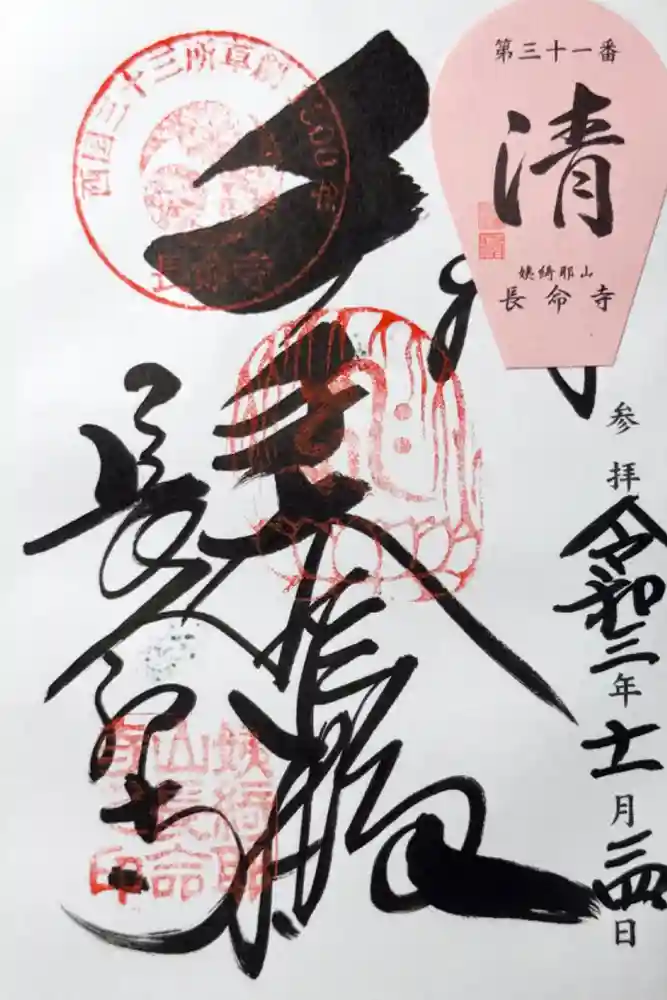 第三十一番
清
姨綺耶山
長命寺
参拝
令和三年十一月二四日
西国三十三所草創1300年
長命寺
千手大悲殿
長命寺
姨綺耶山長命寺印